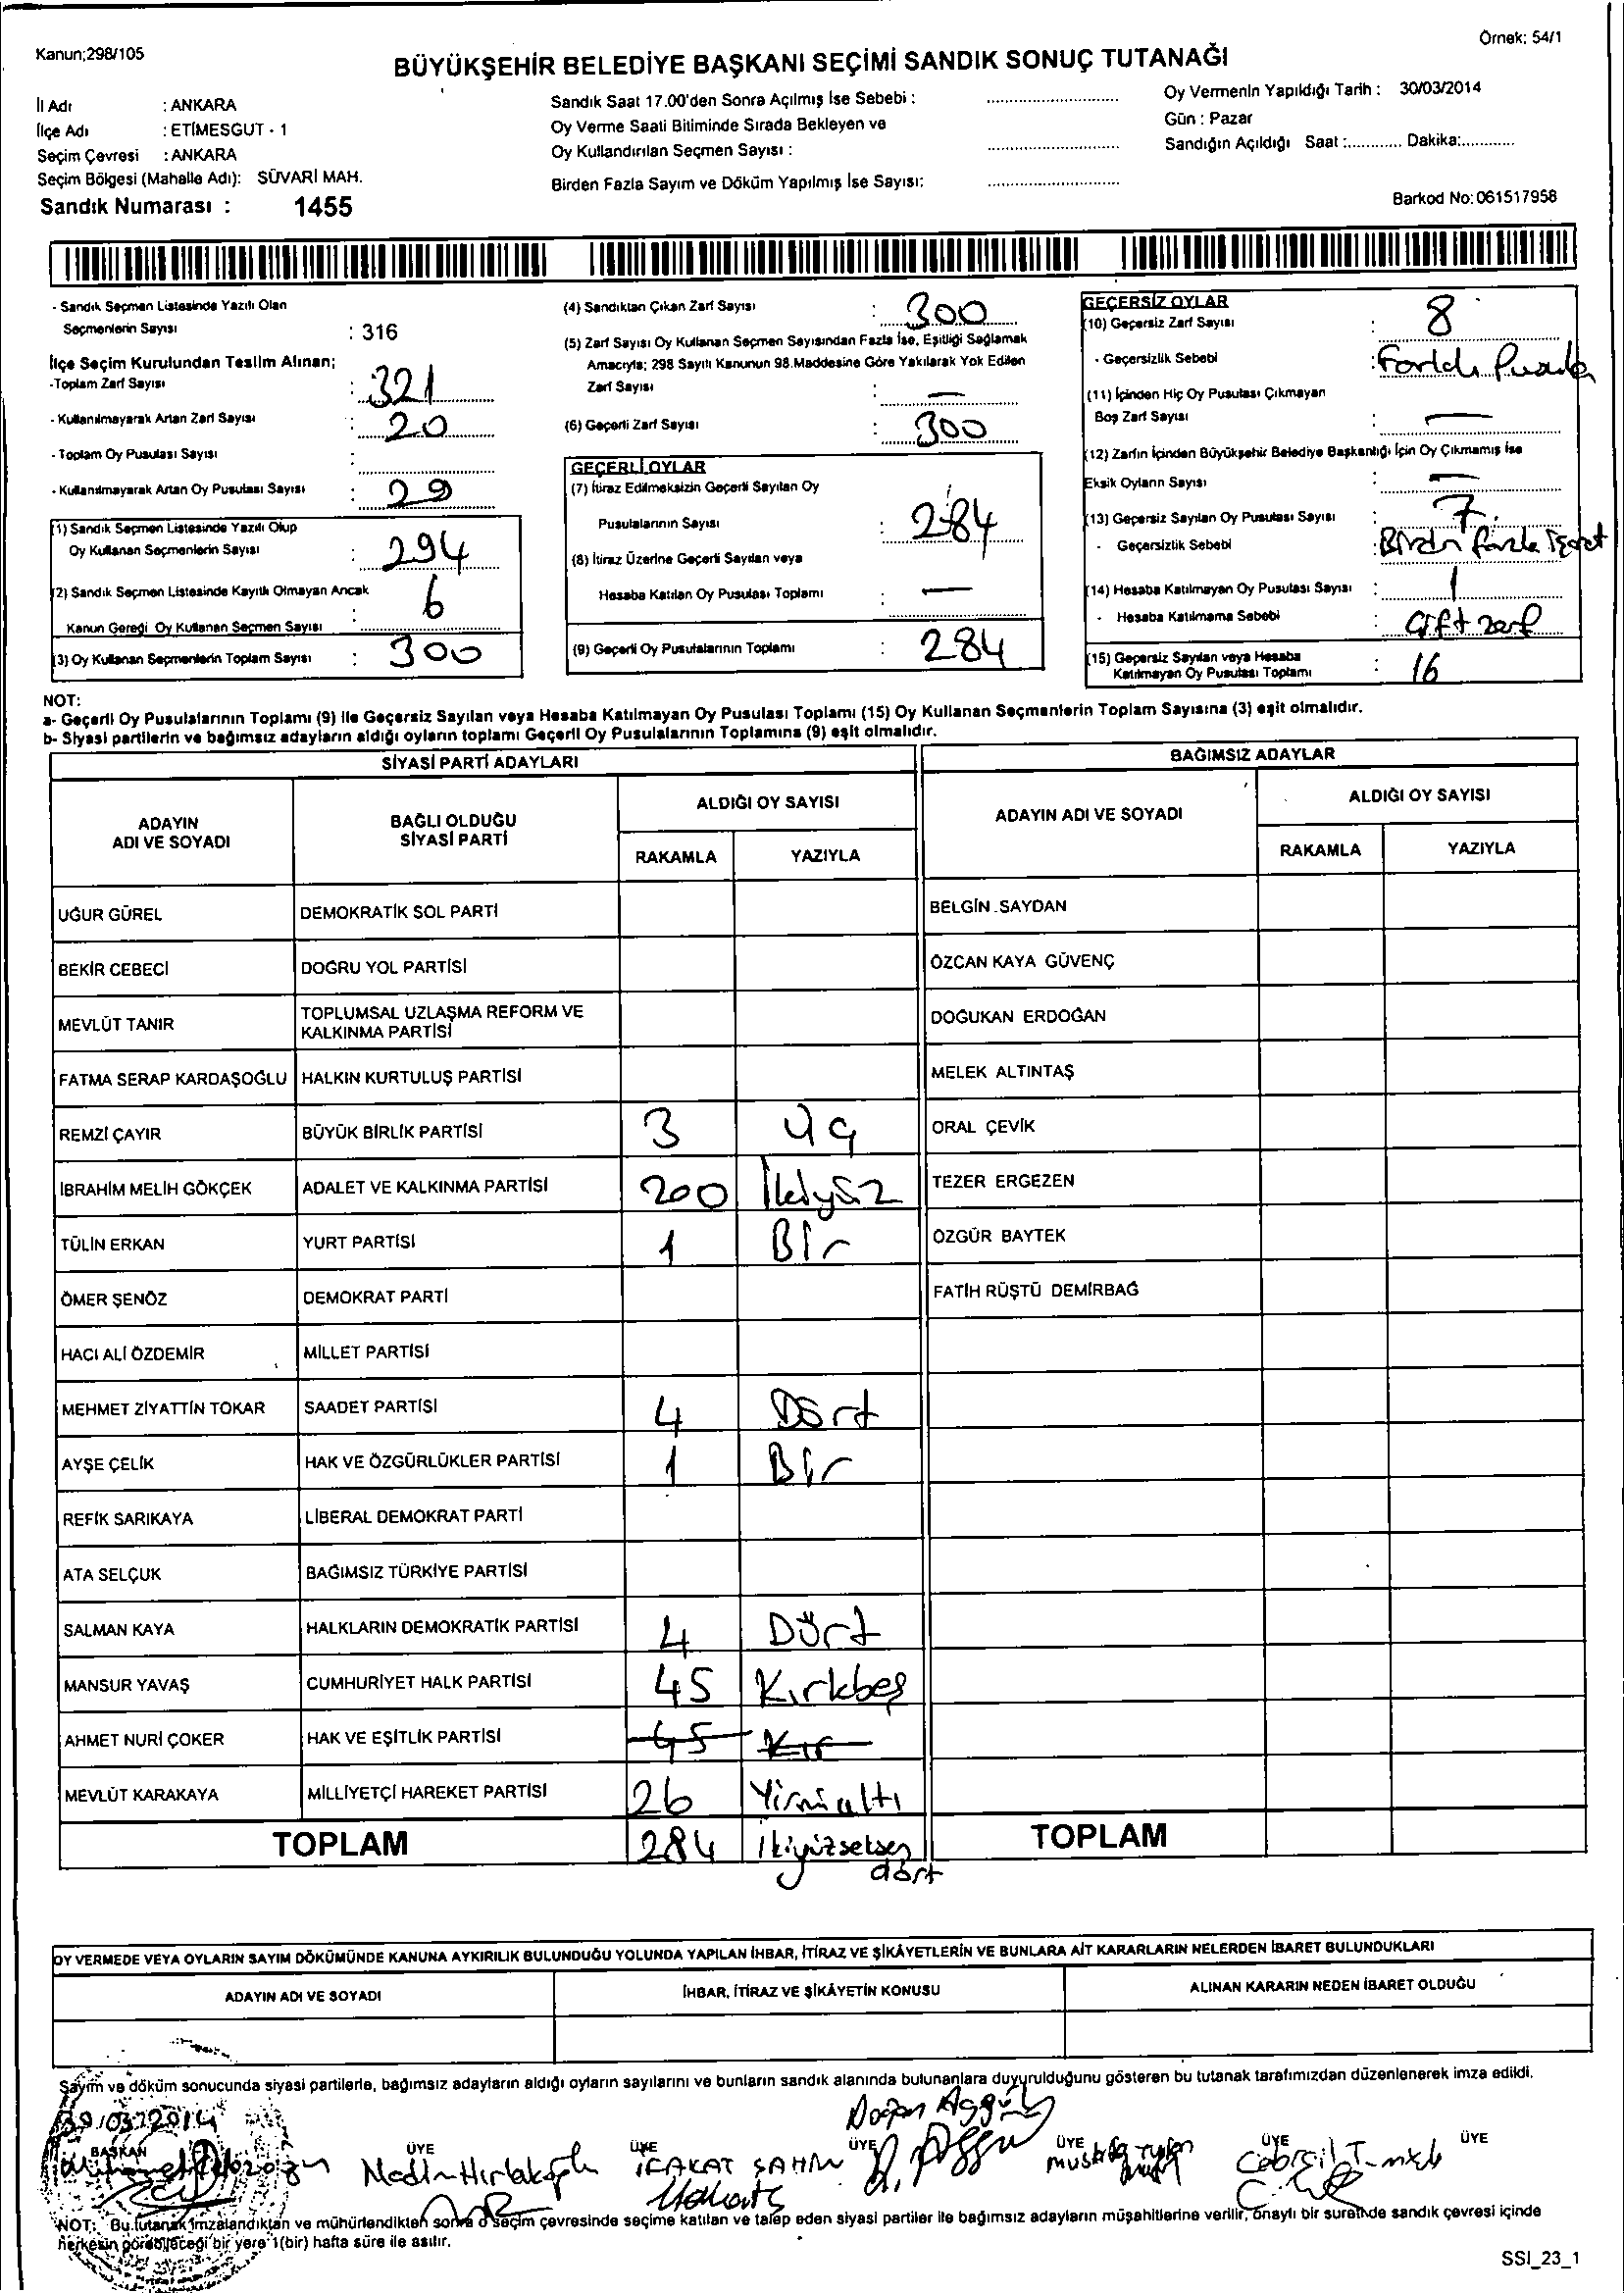 Kanun;298/105
Örnek: 54/1
BÜYÜKŞEHİR BELEDİYE BAŞKANI SEÇİMİ SANDIK SONUÇ TUTANAĞI
İl Adı : ANKARA
İlçe Adı : ETİMESGUT - 1
Seçim Çevresi : ANKARA
Seçim Bölgesi (Mahalle Adı): SÜVARİ MAH.
Sandık Numarası : 1455
Sandık Saat 17.00'den Sonra Açılmış İse Sebebi :
Oy Verme Saati Bitiminde Sırada Bekleyen ve
Oy Kullandırılan Seçmen Sayısı :
Birden Fazla Sayım ve Döküm Yapılmış İse Sayısı:
Oy Vermenin Yapıldığı Tarih : 30/03/2014
Gün : Pazar
Sandığın Açıldığı Saat :............ Dakika:............
Barkod No: 061517958
- Sandık Seçmen Listesinde Yazılı Olan
Seçmenlerin Sayısı : 316
İlçe Seçim Kurulundan Teslim Alınan;
-Toplam Zarf Sayısı : 321
- Kullanılmayarak Artan Zarf Sayısı : 20
- Toplam Oy Pusulası Sayısı :
- Kullanılmayarak Artan Oy Pusulası Sayısı : 29
(1) Sandık Seçmen Listesinde Yazılı Olup
Oy Kullanan Seçmenlerin Sayısı : 294
(2) Sandık Seçmen Listesinde Kayıtlı Olmayan Ancak
Kanun Gereği Oy Kullanan Seçmen Sayısı : 6
(3) Oy Kullanan Seçmenlerin Toplam Sayısı : 300
(4) Sandıktan Çıkan Zarf Sayısı : 300
(5) Zarf Sayısı Oy Kullanan Seçmen Sayısından Fazla İse, Eşitliği Sağlamak
Amacıyla; 298 Sayılı Kanunun 98.Maddesine Göre Yakılarak Yok Edilen
Zarf Sayısı : —
(6) Geçerli Zarf Sayısı : 300
GEÇERLİ OYLAR
(7) İtiraz Edilmeksizin Geçerli Sayılan Oy
Pusulalarının Sayısı : 284
(8) İtiraz Üzerine Geçerli Sayılan veya
Hesaba Katılan Oy Pusulası Toplamı : —
(9) Geçerli Oy Pusulalarının Toplamı : 284
GEÇERSİZ OYLAR
(10) Geçersiz Zarf Sayısı : 8
- Geçersizlik Sebebi : Farklı Pusula
(11) İçinden Hiç Oy Pusulası Çıkmayan
Boş Zarf Sayısı : —
(12) Zarfın İçinden Büyükşehir Belediye Başkanlığı İçin Oy Çıkmamış İse
Eksik Oyların Sayısı : —
(13) Geçersiz Sayılan Oy Pusulası Sayısı : 7
- Geçersizlik Sebebi : Birdn fazla işaret
(14) Hesaba Katılmayan Oy Pusulası Sayısı : 1
- Hesaba Katılmama Sebebi : Çift zarf
(15) Geçersiz Sayılan veya Hesaba
Katılmayan Oy Pusulası Toplamı : 16
NOT:
a- Geçerli Oy Pusulalarının Toplamı (9) ile Geçersiz Sayılan veya Hesaba Katılmayan Oy Pusulası Toplamı (15) Oy Kullanan Seçmenlerin Toplam Sayısına (3) eşit olmalıdır.
b- Siyasi partilerin ve bağımsız adayların aldığı oyların toplamı Geçerli Oy Pusulalarının Toplamına (9) eşit olmalıdır.
SİYASİ PARTİ ADAYLARI
ADAYIN ADI VE SOYADI
BAĞLI OLDUĞU SİYASİ PARTİ
ALDIĞI OY SAYISI
RAKAMLA YAZIYLA
UĞUR GÜREL DEMOKRATİK SOL PARTİ
BEKİR CEBECİ DOĞRU YOL PARTİSİ
MEVLÜT TANIR TOPLUMSAL UZLAŞMA REFORM VE
KALKINMA PARTİSİ
FATMA SERAP KARDAŞOĞLU HALKIN KURTULUŞ PARTİSİ
REMZİ ÇAYIR BÜYÜK BİRLİK PARTİSİ 3 Üç
İBRAHİM MELİH GÖKÇEK ADALET VE KALKINMA PARTİSİ 200 İkiyüz
TÜLİN ERKAN YURT PARTİSİ 1 Bir
ÖMER ŞENÖZ DEMOKRAT PARTİ
HACI ALİ ÖZDEMİR MİLLET PARTİSİ
MEHMET ZİYATTİN TOKAR SAADET PARTİSİ 4 Dört
AYŞE ÇELİK HAK VE ÖZGÜRLÜKLER PARTİSİ 1 Bir
REFİK SARIKAYA LİBERAL DEMOKRAT PARTİ
ATA SELÇUK BAĞIMSIZ TÜRKİYE PARTİSİ
SALMAN KAYA HALKLARIN DEMOKRATİK PARTİSİ 4 Dört
MANSUR YAVAŞ CUMHURİYET HALK PARTİSİ 45 Kırkbeş
AHMET NURİ ÇOKER HAK VE EŞİTLİK PARTİSİ 45 Kır
MEVLÜT KARAKAYA MİLLİYETÇİ HAREKET PARTİSİ 26 Yirmialtı
TOPLAM 284 İkiyüzseksen
dört
BAĞIMSIZ ADAYLAR
ADAYIN ADI VE SOYADI
ALDIĞI OY SAYISI
RAKAMLA YAZIYLA
BELGİN SAYDAN
ÖZCAN KAYA GÜVENÇ
DOĞUKAN ERDOĞAN
MELEK ALTINTAŞ
ORAL ÇEVİK
TEZER ERGEZEN
ÖZGÜR BAYTEK
FATİH RÜŞTÜ DEMİRBAĞ
TOPLAM
OY VERMEDE VEYA OYLARIN SAYIM DÖKÜMÜNDE KANUNA AYKIRILIK BULUNDUĞU YOLUNDA YAPILAN İHBAR, İTİRAZ VE ŞİKÂYETLERİN VE BUNLARA AİT KARARLARIN NELERDEN İBARET BULUNDUKLARI
ADAYIN ADI VE SOYADI
İHBAR, İTİRAZ VE ŞİKÂYETİN KONUSU
ALINAN KARARIN NEDEN İBARET OLDUĞU
Sayım ve döküm sonucunda siyasi partilerle, bağımsız adayların aldığı oyların sayılarını ve bunların sandık alanında bulunanlara duyurulduğunu gösteren bu tutanak tarafımızdan düzenlenerek imza edildi.
30/03/2014
BAŞKAN ÜYE ÜYE ÜYE ÜYE ÜYE ÜYE
İFAKAT ŞAHİN
NOT: Bu tutanak imzalandıktan ve mühürlendikten sonra o seçim çevresinde seçime katılan ve talep eden siyasi partiler ile bağımsız adayların müşahitlerine verilir, onaylı bir suretinde sandık çevresi içinde
herkesin görebileceği bir yere 1(bir) hafta süre ile asılır.
SSI_23_1